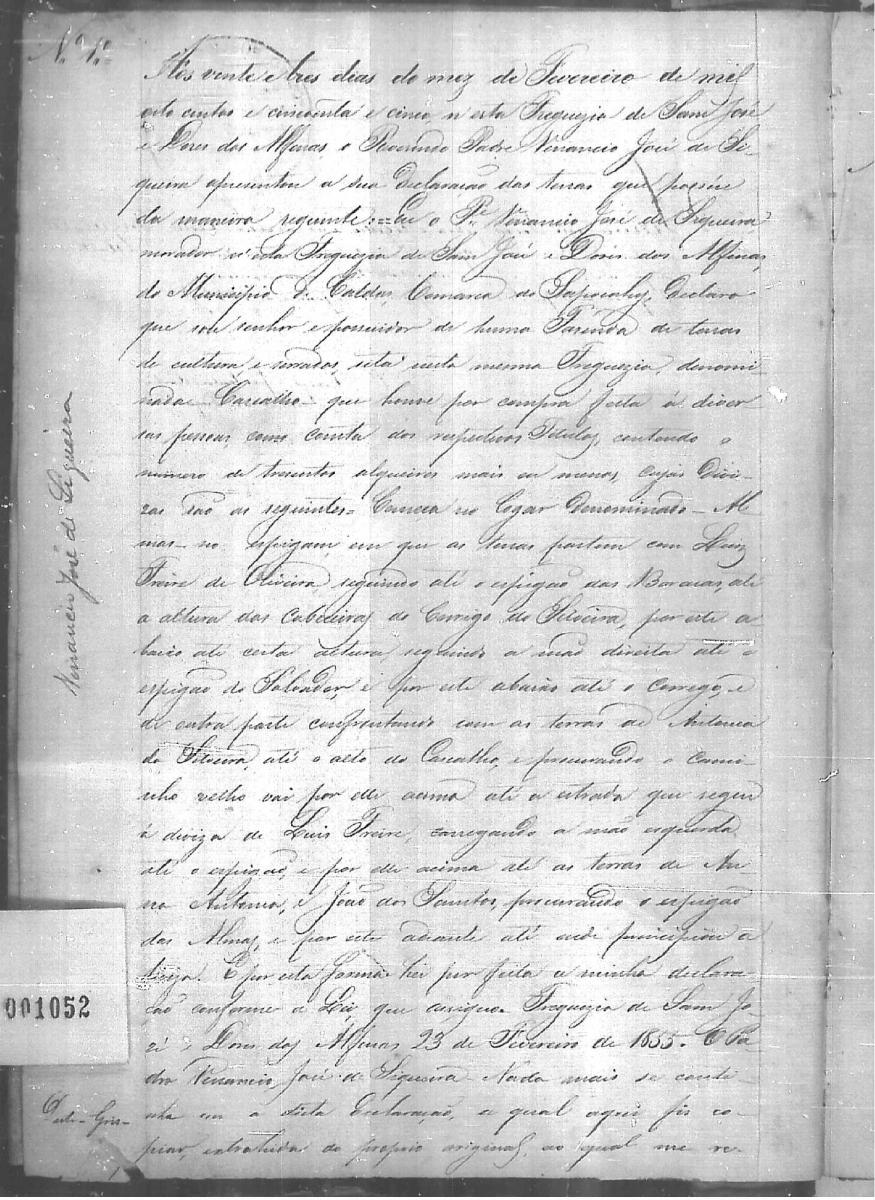 Nº 1º
Aos vente e tres dias do mez de Fevereiro de mil
oito centos e cincoenta e cinco, n'esta Freguezia de Sam José
e Dores dos Alfenas, o Reverendo Padre Venancio José de Si-
queira apresentou a sua declaração das terras que possúe
da maneira seguinte:=Eu o Pe. Venancio José de Siqueira
morador n'esta Freguezia de Sam José e Dores dos Alfenas,
do Municipio de Caldas, Comarca do Sapucahy, Declaro
que sou senhor e possuidor de huma Fazenda de terras
de cultura, e serrados, sita nesta mesma Freguezia, denomi-
nada - Carvalho - que houve por compra feita á diver-
sas pessoas, como consta dos respectivos Titulos, contendo o
número de trezentos alqueires mais ou menos, cujas divi-
zas são as seguintes = Comeca no Logar Denominado - Al-
mas - no espigam em que as terras partem com Luiz
Freire de Oliveira, seguindo até o espigão das até
a altura das cabeceiras do Corrego do Silveira, por este a
baixo até certa altura, seguindo a mão direita até o
espigão do Salvador, e por este abaixo até o corrego, e
de outra parte confrontando com as terras de Antonio
da Silveira, até o alto do Carvalho, e procurando o cami-
nho velho vai por elle acima até a estrada que segue
á diviza de Luis Freire, carregando a mão esquerda
até o espigão, e por elle acima até as terras de An-
na Antonia, e João dos Santos, procurando o espigão
das Almas, e por este adiante até onde principiou a
diviza. E por esta forma hei por feita a minha declara-
ção conforme a Lei, que assigno. Freguezia de Sam Jo-
zé e Dores dos Alfenas 23 de Fevereiro de 1855. O Pa-
dre Venancio José de Siqueira - Nada mais se conti-
nha em a dicta declaração, a qual aqui fis co-
piar, extrahida do proprio original, ao qual me re-
Venancio José de Siqueira
001052